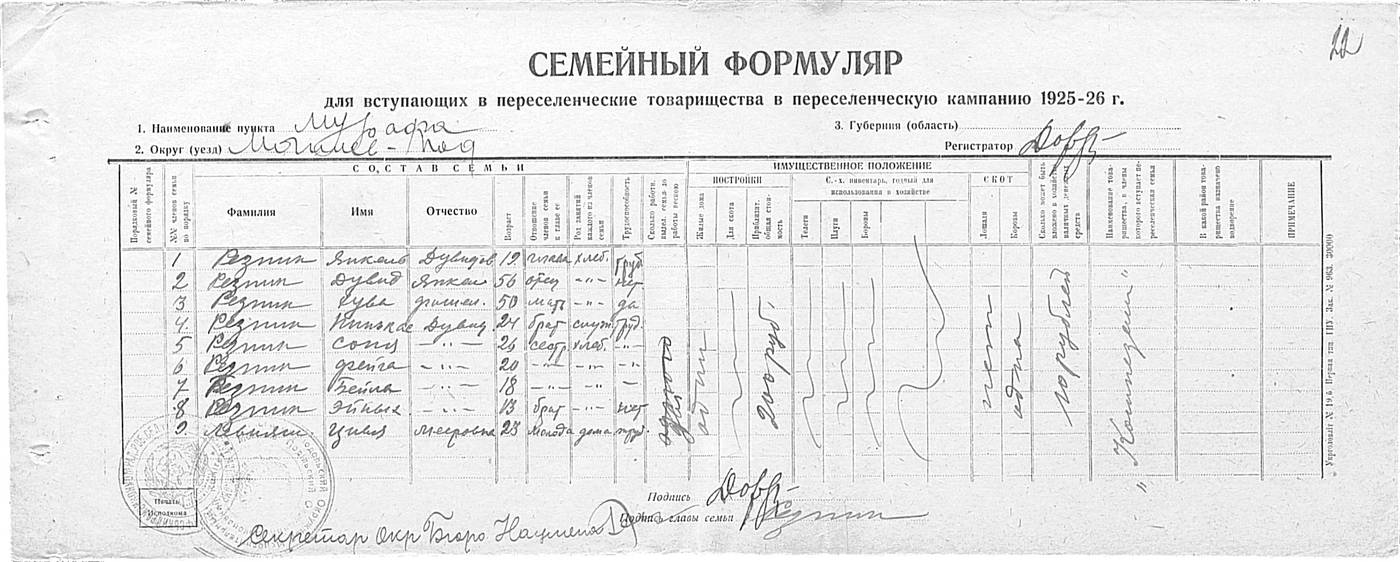 22
СЕМЕЙНЫЙ ФОРМУЛЯР
для вступающих в переселенческие товарищества в переселенческую кампанию 1925-26 г.
1. Наименование пункта Мурафа
3. Губерния (область)
2. Округ (уезд) Могилев-Под
Регистратор
СОСТАВ СЕМЬИ
ИМУЩЕСТВЕННОЕ ПОЛОЖЕНИЕ
ПОСТРОЙКИ
С.-х. инвентарь, годный для использования в хозяйстве
СКОТ
Порядковый № семейного формуляра
№№ членов семьи по порядку
Фамилия
Имя
Отчество
Возраст
Отношение членов семьи к главе ее
Род занятий каждого из членов семьи
Трудоспособность
Сколько работн. выдел. семья до работы весною
Жилые дома
Для скота
Приблизит. общая стоимость
Телеги
Плуги
Бороны
Лошади
Коровы
Сколько может быть вложено в хозяйство наличных денежных средств
Наименование товарищества, в члены которого вступает переселенческая семья
В какой район товарищества назначено водворение
ПРИМЕЧАНИЕ
1 Резник Янкель Дувидов 19 глава хлеб. труд
2 Резник Дувид Янкел 56 отец -"- нет
3 Резник Хува фишел. 50 мать -"- да
4. Резник Дувид. 24 брат служ. труд.
5 Резник Соня -"- 26 сестр. хлеб. -"-
6 Резник Фейга -"- 20 -"- -"- -"-
7 Резник Бейла -"- 18 -"- -"- -
8 Резник -"- 13 брат -"- нет
9. Цивя Мееровна 23 дома труд.
одного
один
200 руб.
нет
одна
рублей
Печать Исполкома
Подпись
Подпись главы семьи Резник
Секретар Окр Бюро Нацмено
Укрголовліт № 19,6 Перша тип. ПЦ. Зак. № 963. 30000